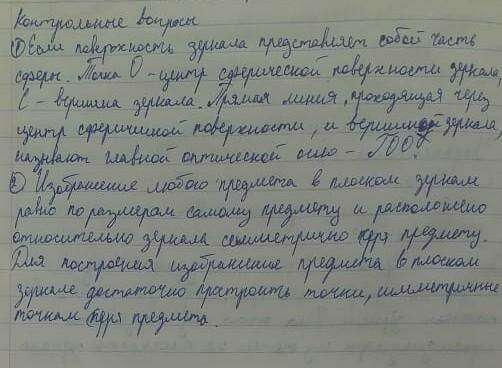 Контрольные вопросы
① Если поверхность зеркала представляет собой часть
сферы. Точка О - центр сферической поверхности зеркала,
С - вершина зеркала. Прямая линия, проходящая через
центр сферичиной поверхности, и вершиной зеркала,
называют главной оптической осью -
② Изображение любого предмета в плоском зеркале
равно по размерам самому предмету и расположено
относительно зеркала семметрично предмету.
Для построения изображение предмета в плоском
зеркале достаточно простроить точки, симметричные
точкам предмета.